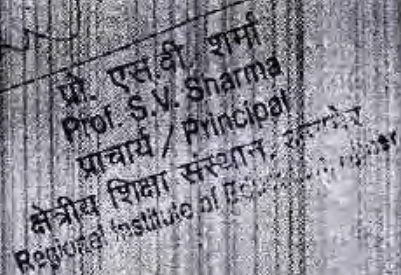 प्रो. एस.वी. शर्मा
Prof. S.V. Sharma
प्राचार्य / Principal
क्षेत्रीय शिक्षा संस्थान,
Regional Institute of